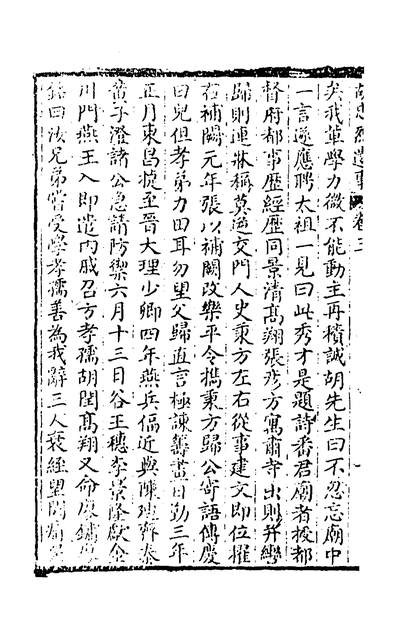 胡忠烈遺事 卷三
矣我輩學力微不能動主再積誠胡先生曰不忍忘廟中
一言遂應聘太祖一見曰此秀才是題詩番君廟者授都
督府都事歷經歷同景清高翔張彥方寓肅寺出則并轡
歸則連牀稱莫逆交門人史秉方左右從事建文即位擢
右補闕元年張以補闕改樂平令攜秉方歸公寄語傳慶
曰兒但孝弟力田耳勿望父歸直言極諫籌畫日勤三年
正月東昌捷至晉大理少卿四年燕兵偪近與陳廸齊泰
黃子澄諸公急請防禦六月十三日谷王穗李景隆獻金
川門燕王入即遣內戚召方孝孺胡閏高翔又命廖鏞廖
銘曰汝兄弟嘗受學孝孺善為我辭三人衰絰望闕